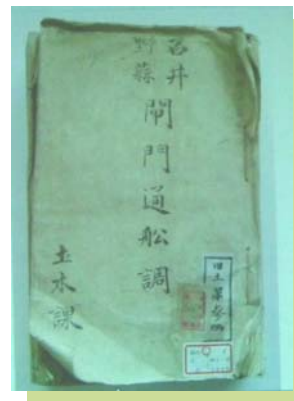 石井
野蒜
閘門通船調
土木課